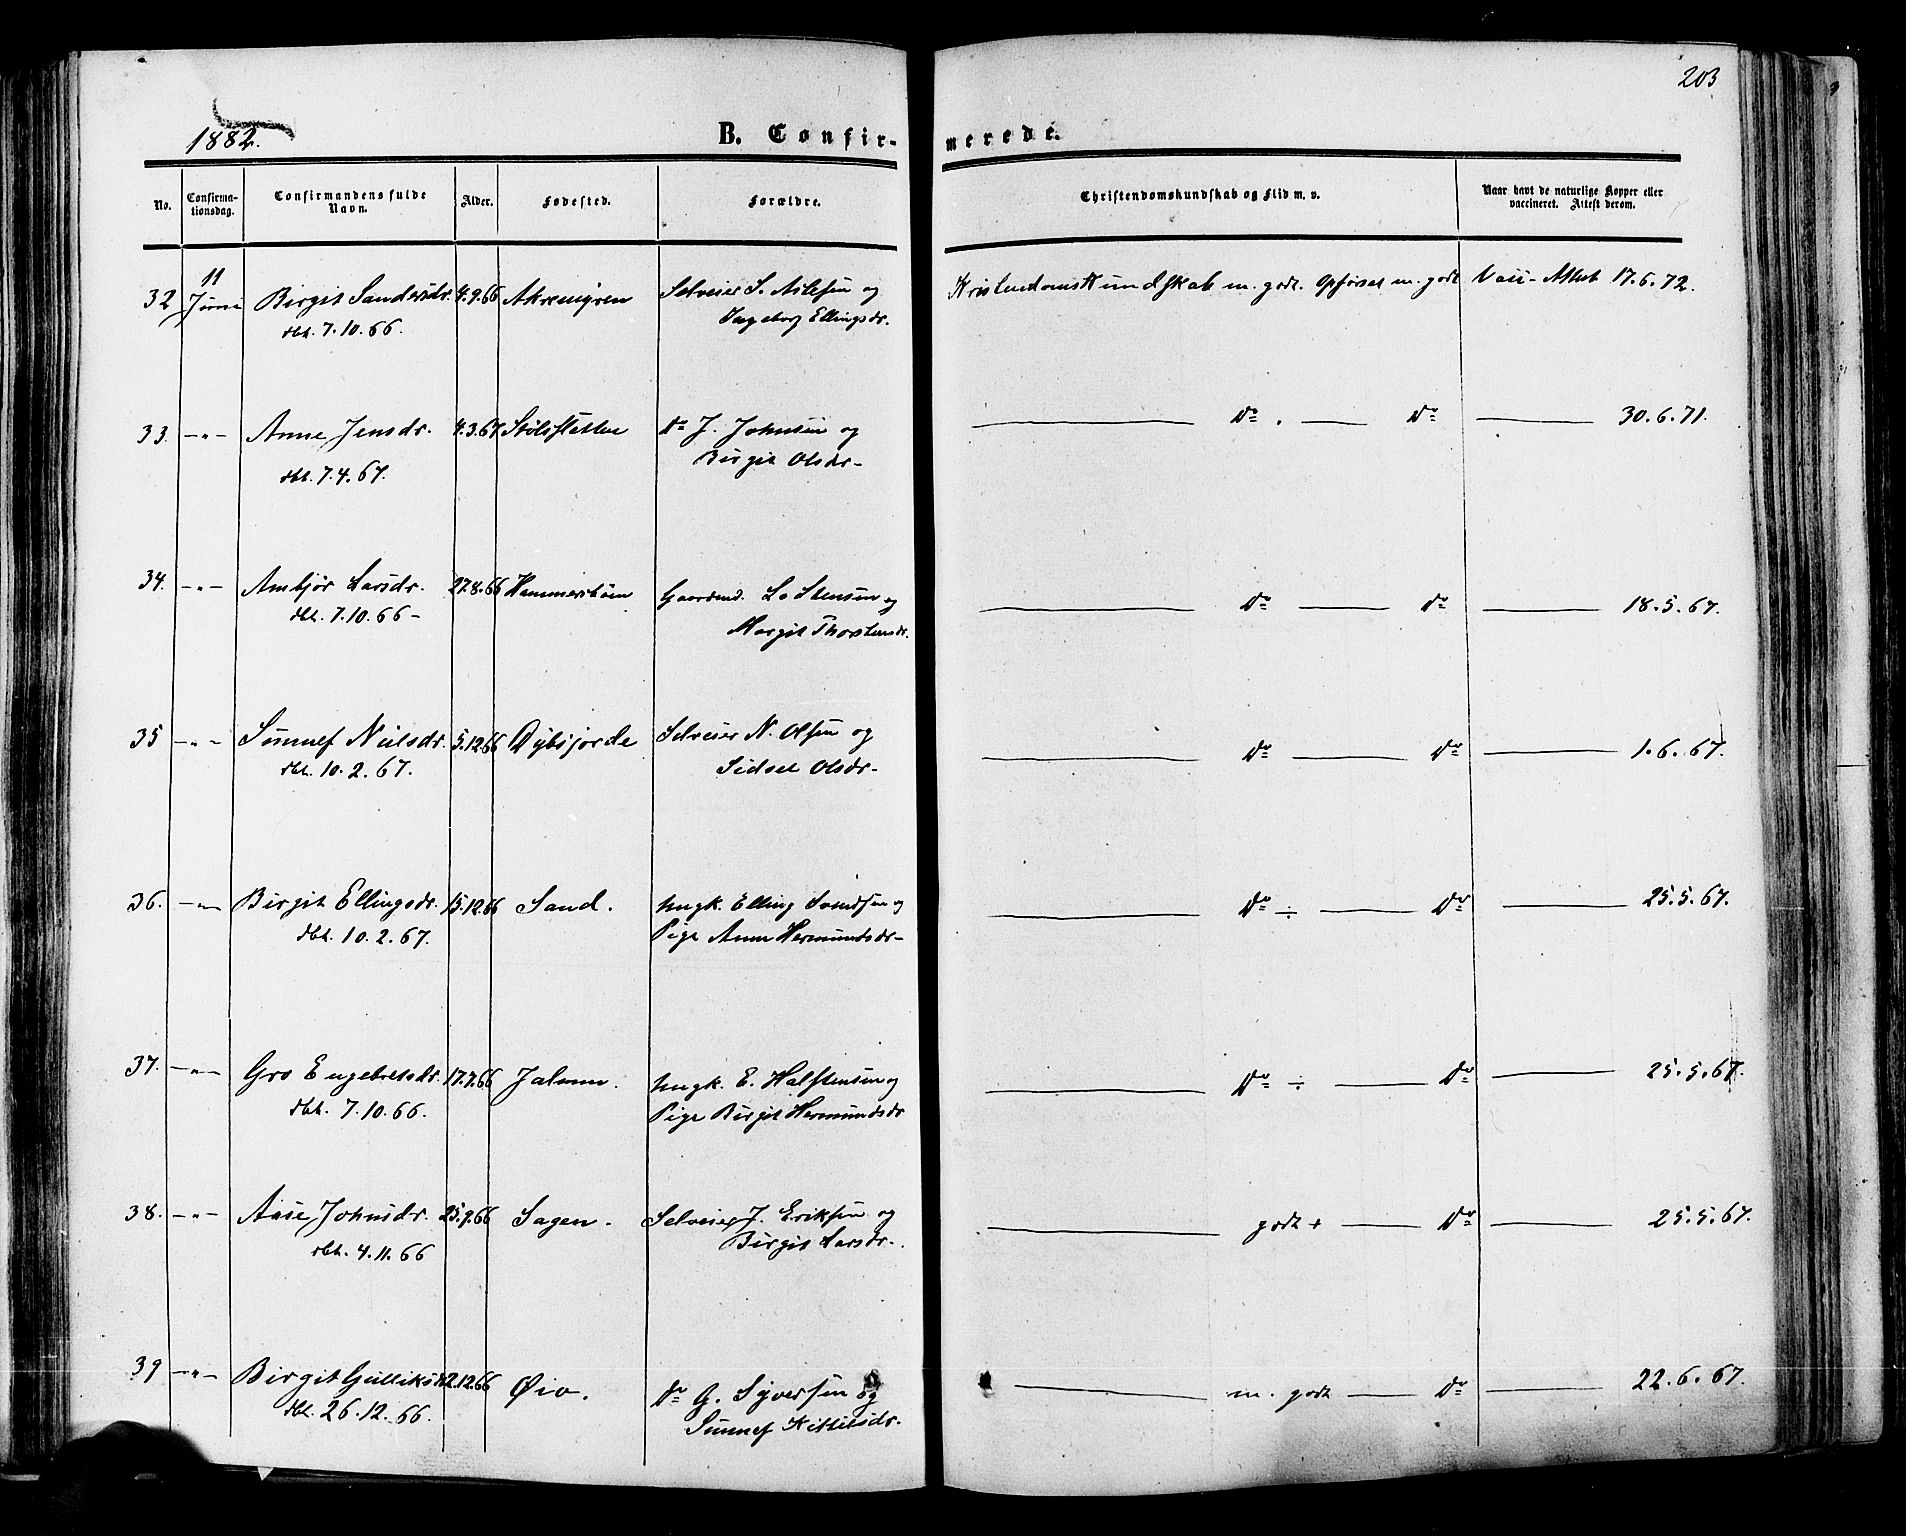 203
1882.
B. Confirmerede.
No. Confirmationsdag. Confirmandens fulde Navn. Alder. Fødested. Forældre. Christendomskundskab og Flid m. v. Naar havt de naturlige Kopper eller vaccineret. Attest derom.
32 11 Juni Birgit Sandersdr. 4.9.66 Selveier S. Aslesen og Kristendomskundskab m. godt. Opførsel m. godt Vacc-Attest 17.6.72.
dbt. 7.10.66. Ingeborg Ellingsdr.
33. —"— Anne Jensdr. 4.3.67 Stølsfletten Do J. Johnsen og — Do. — Do — 30.6.71.
dbt. 7.4.67. Birgit Olsdr-
34. —"— Ambjør Larsdr. 27.8.66 Hammersbøen Gaardmd. L. Stensen og — Do — Do — 18.5.67.
dbt. 7.10.66- Margit Thorstensdr.
35 —"— Sunnef Nielsdr. 5.12.66 Dybsjorde Selveier N. Olsen og — Do — Do — 1.6.67.
dbt. 10.2.67. Sidsel Olsdr-
36. —"— Birgit Ellingsdr. 15.12.66 Sand. Ungk. Elling Svendsen og — Do ÷ — Do — 25.5.67.
dbt. 10.2.67. Pige Anne Hermundsdr-
37. —"— Gro Engebretsdr. 17.7.66 Ungk. E. Halstensen og — Do ÷ — Do — 25.5.67.
dbt. 7.10.66. Pige Birgit Hermundsdr
38. —"— Aase Johnsdr. 25.9.66 Sagen. Selveier J. Eriksen og — godt + — Do — 25.5.67.
dbt. 4.11.66 Birgit Larsdr.
39 —"— Birgit Gulliksdr. 2.12.66 Øio. Do G. Syversen og — m. godt — Do — 22.6.67.
dbt. 26.12.66. Sunnef Kittilsdr.